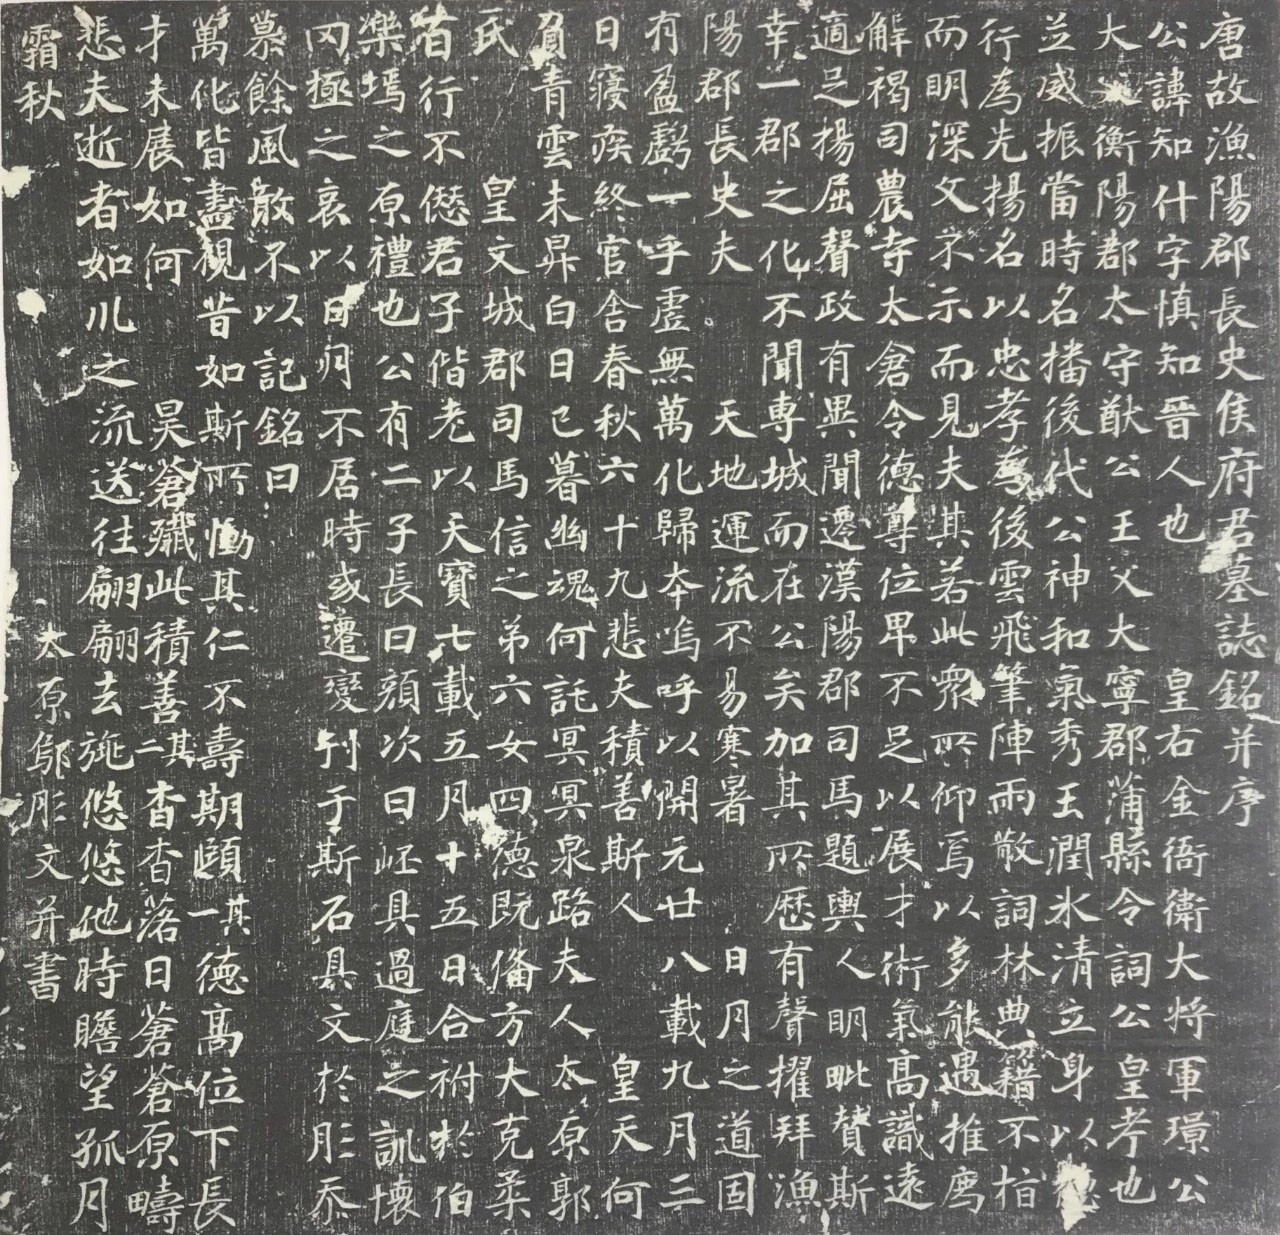 唐故漁陽郡長史侯府君墓誌銘并序
公諱知什字慎知晉人也 皇右金吾衛大將軍璟公
大父衡陽郡太守猷公王父大寧郡蒲縣令詞公皇考也
並威振當時名播後代公神和氣秀玉潤氷清立身以
行為先揚名以忠孝為後雲飛筆陣雨散詞林典籍不栺
而明深文不示而見夫其若此衆所仰焉以多能遇推薦
解褐司農寺太倉令德尊位卑不足以展才術氣高識遠
適足揚屈聲政有異聞遷漢陽郡司馬題輿人明毗贊斯
幸一郡之化不聞専城而在公矣加其所歷有聲擢拜漁
陽郡長史夫 天地運流不易寒暑 日月之道固
有盈虧一乎虛無萬化歸夲嗚呼以開元廿八載九月三
日寢疾終官舍春秋六十九悲夫積善斯人 皇天何
負青雲未昇白日已暮幽魂何託冥冥泉路夫人太原郭
氏 皇文城郡司馬信之弟六女四德既俻方大克柔
苟行不僽君子偕老以天寶七載五月十五日合祔於伯
樂塢之原禮也公有二子長曰顔次曰岯具過庭之訓懷
罔極之哀以日月不居時或遷變刋于斯石具文於彤忝
慕餘風敢不以記銘曰
萬化皆盡視昔如斯所慟其仁不壽期頤其一德高位下長
才未展如何 昊蒼殲此積善其二杳杳落日蒼蒼原疇
悲夫逝者如川之流送往翩翩去旐悠悠他時瞻望孤月
霜秋 太原鄔彤文并書